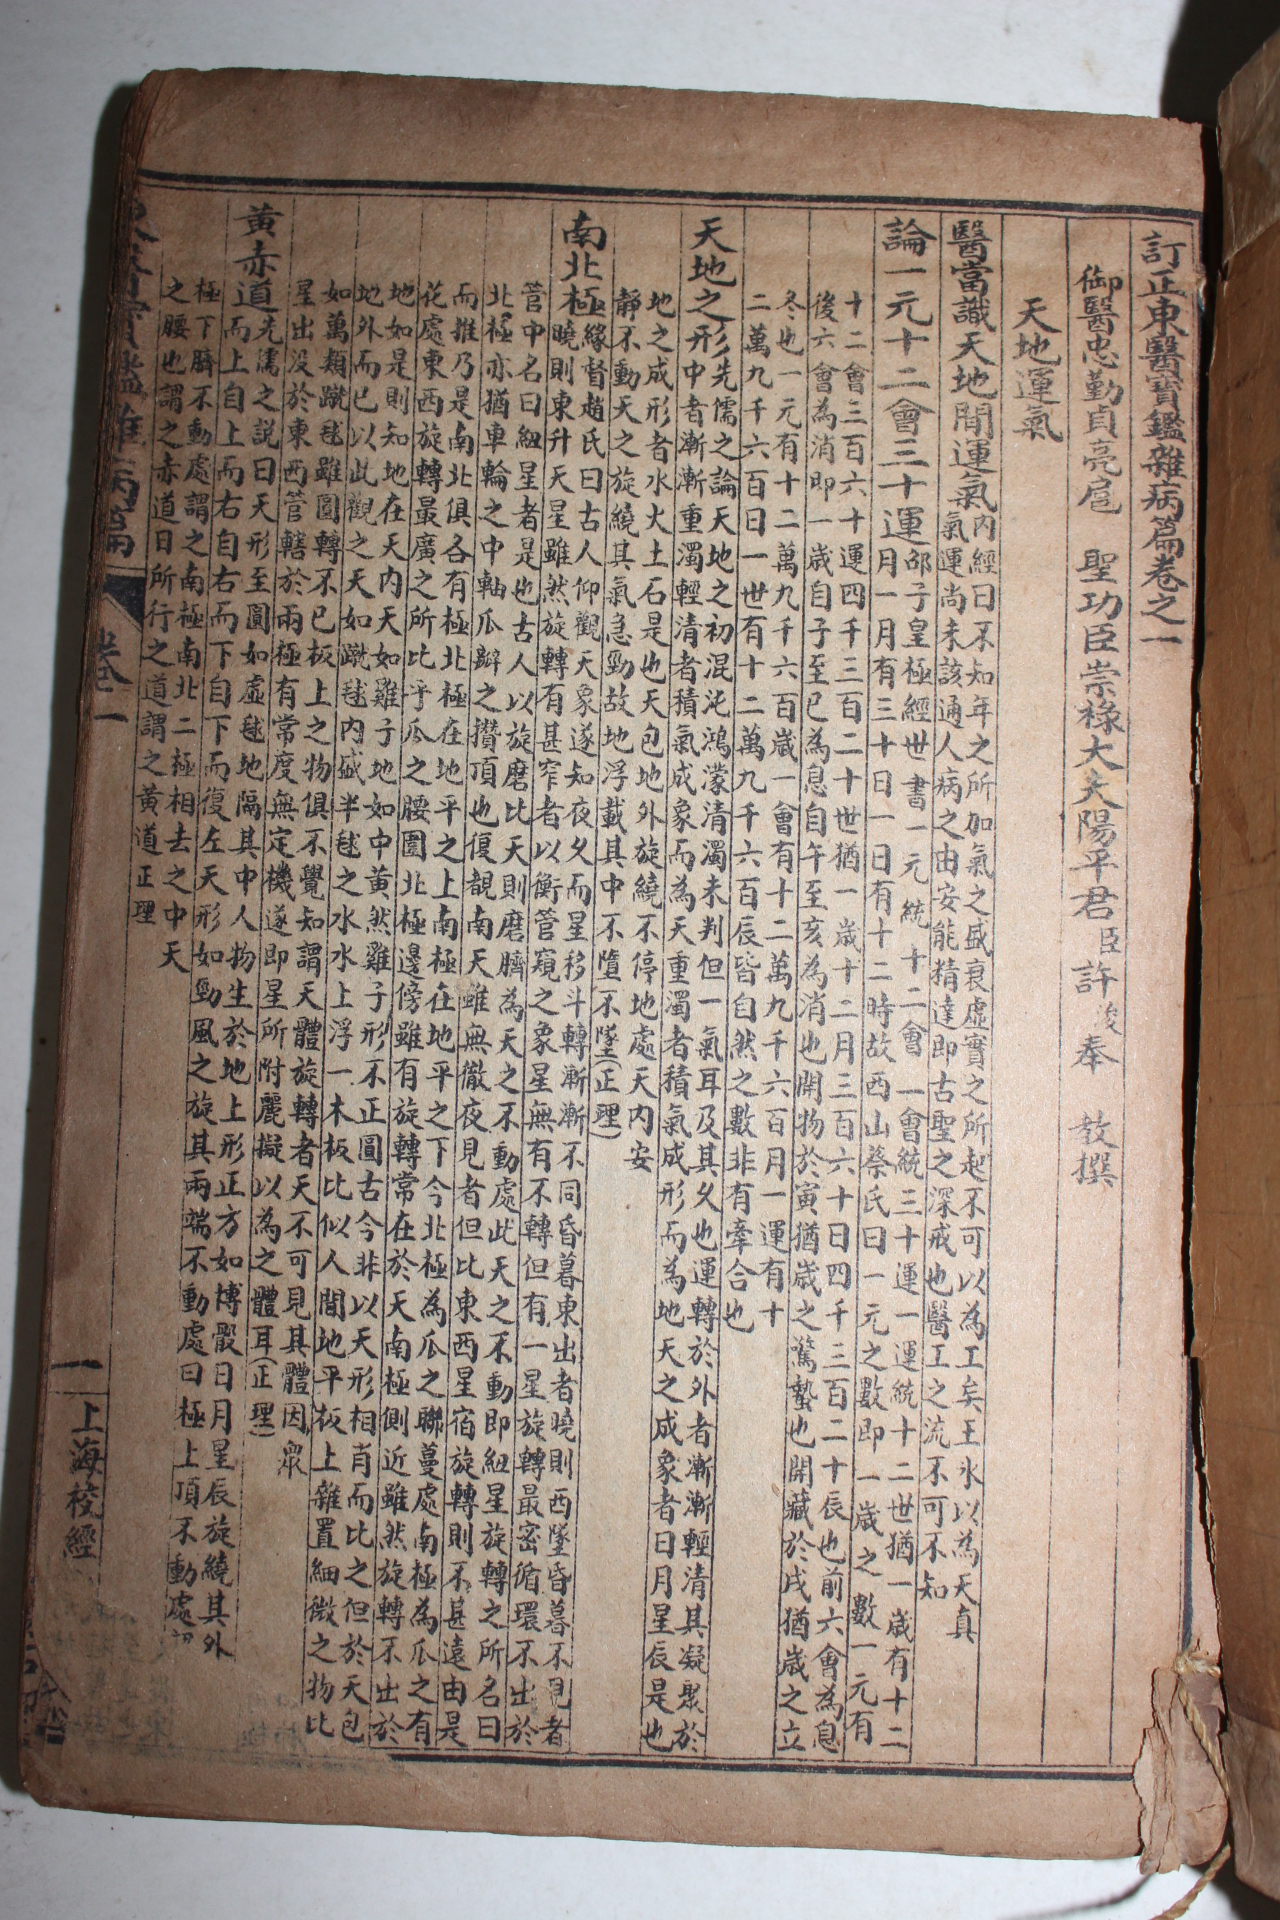 訂正東醫寶鑑雜病篇卷之一
御醫忠勤貞亮扈 聖功臣崇祿大夫陽平君臣許浚奉 教撰
天地運氣
醫當識天地間運氣內經曰不知年之所加氣之盛衰虛實之所起不可以為工矣王氷以為天真
氣運尚未該通人病之由安能精達即古聖之深戒也醫王之流不可不知
論一元十二會三十運邵子皇極經世書一元統十二會一會統三十運一運統十二世猶一歲有十二
月一月有三十日一日有十二時故西山蔡氏曰一元之數即一歲之數一元有
十二會三百六十運四千三百二十世猶一歲十二月三百六十日四千三百二十辰也前六會為息
後六會為消即一歲自子至巳為息自午至亥為消也開物於寅猶歲之驚蟄也開藏於戌猶歲之立
冬也一元有十二萬九千六百歲一會有十二萬九千六百月一運有十
二萬九千六百日一世有十二萬九千六百辰皆自然之數非有牽合也
天地之形先儒之論天地之初混沌鴻濛清濁未判但一氣耳及其久也運轉於外者漸漸輕清其凝聚於
中者漸漸重濁輕清者積氣成象而為天重濁者積氣成形而為地天之成象者日月星辰是也
地之成形者水火土石是也天包地外旋繞不停地處天內安
靜不動天之旋繞其氣急勁故地浮載其中不墮不墜(正理)
南北極緣督趙氏曰古人仰觀天象遂知夜久而星移斗轉漸漸不同昏暮東出者曉則西墜昏暮不見者
曉則東升天星雖然旋轉有甚窄者以衡管窺之象星無有不轉但有一星旋轉最密循環不出於
管中名曰紐星者是也古人以旋磨比天則磨臍為天之不動處此天之不動即紐星旋轉之所名曰
北極亦猶車輪之中軸瓜瓣之攢頂也復覩南天雖無徹夜見者但比東西星宿旋轉則不甚遠由是
而推乃是南北俱各有極北極在地平之上南極在地平之下今北極為瓜之聯蔓處南極為瓜之有
花處東西旋轉最廣之所比乎瓜之腰圍北極邊傍雖有旋轉常在於天南極側近雖然旋轉不出於
地如是則知地在天內天如雞子地如中黃然雞子形不正圓古今非以天形相肖而比之但於天包
地外而已以此觀之天如蹴毬內盛半毬之水水上浮一木板比似人間地平板上雜置細微之物比
如萬類蹴毬雖圓轉不已板上之物俱不覺知謂天體旋轉者天不可見其體因衆
星出沒於東西管轄於兩極有常度無定機遂即星所附麗擬以為之體耳(正理)
黃赤道先儒之說曰天形至圓如虛毬地隔其中人物生於地上形正方如博骰日月星辰旋繞其外
而上自上而右自右而下自下而復左天形如勁風之旋其兩端不動處曰極上頂不動處
極下臍不動處謂之南極南北二極相去之中天
之腰也謂之赤道日所行之道謂之黃道正理
卷一
一
上海校經